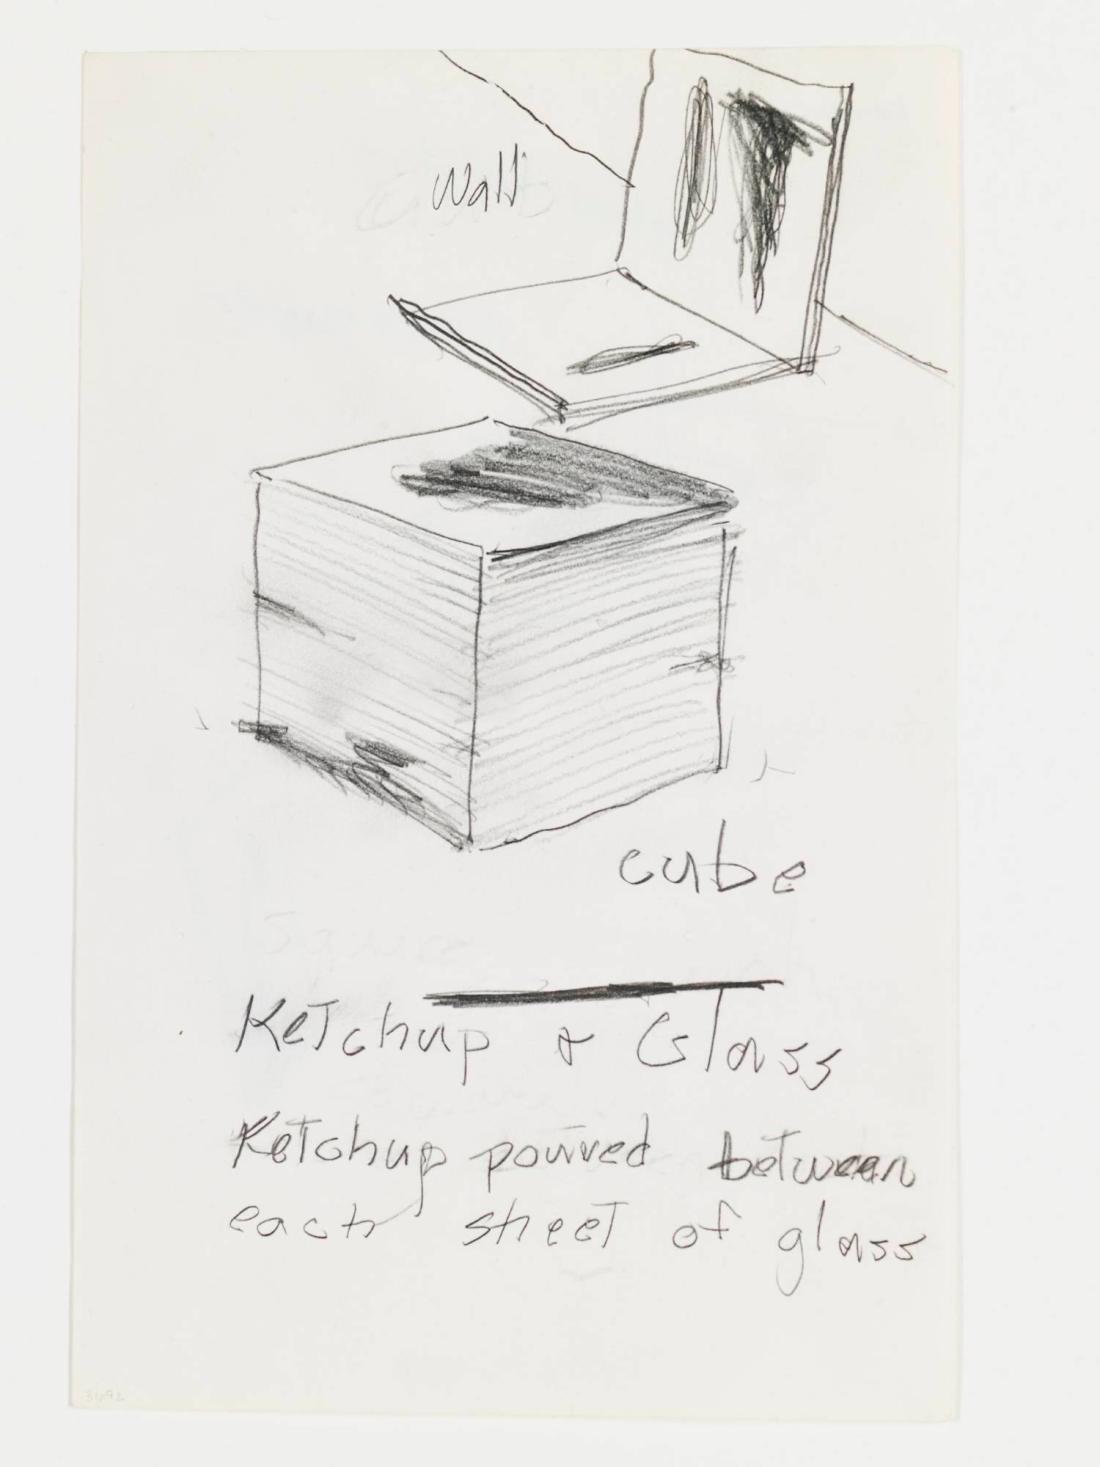 Wall
cube
Ketchup & Glass
Ketchup poured between
each sheet of glass
3692